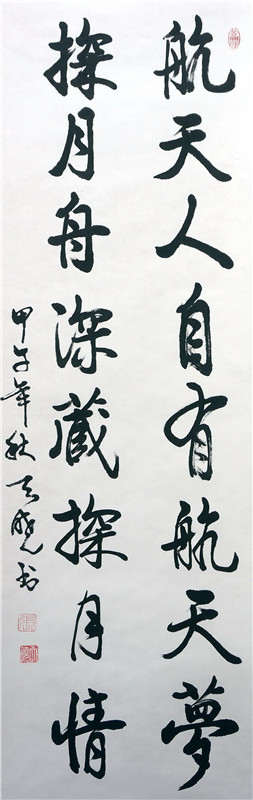 航天人自有航天夢
探月舟深藏探月情
甲午年秋天曉书